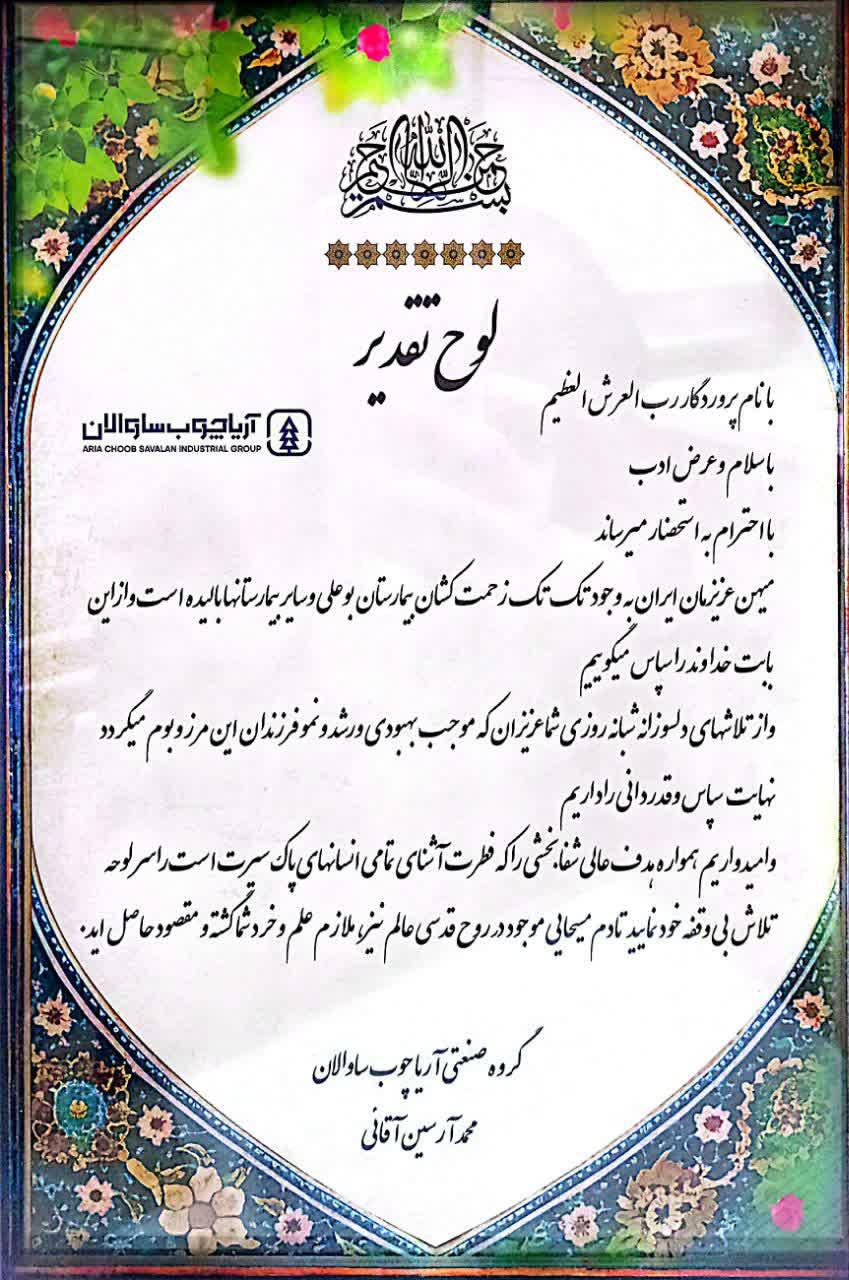 بسم الله الرحمن الرحیم
لوح تقدیر
با نام پروردگار رب العرش العظیم
آریا چوب ساوالان
ARIA CHOOB SAVALAN INDUSTRIAL GROUP
با سلام و عرض ادب
با احترام به استحضار میرساند
میهن عزیزمان ایران به وجود تک تک زحمت کشان بیمارستان بوعلی و سایر بیمارستانها بالیده است و از این
بابت خداوند را سپاس میگوییم
و از تلاشهای دلسوزانه شبانه روزی شما عزیزان که موجب بهبودی و رشد و نمو فرزندان این مرز و بوم میگردد
نهایت سپاس و قدردانی را داریم
و امیدواریم همواره هدف عالی شفابخشی را که فطرت آشنای تمامی انسانهای پاک سیرت است را سرلوحه
تلاش بی وقفه خود نمایید تا دم مسیحایی موجود در روح قدسی عالم نیز، ملازم علم و خرد شما گشته و مقصود حاصل اید.
گروه صنعتی آریا چوب ساوالان
محمد آرسین آقائی